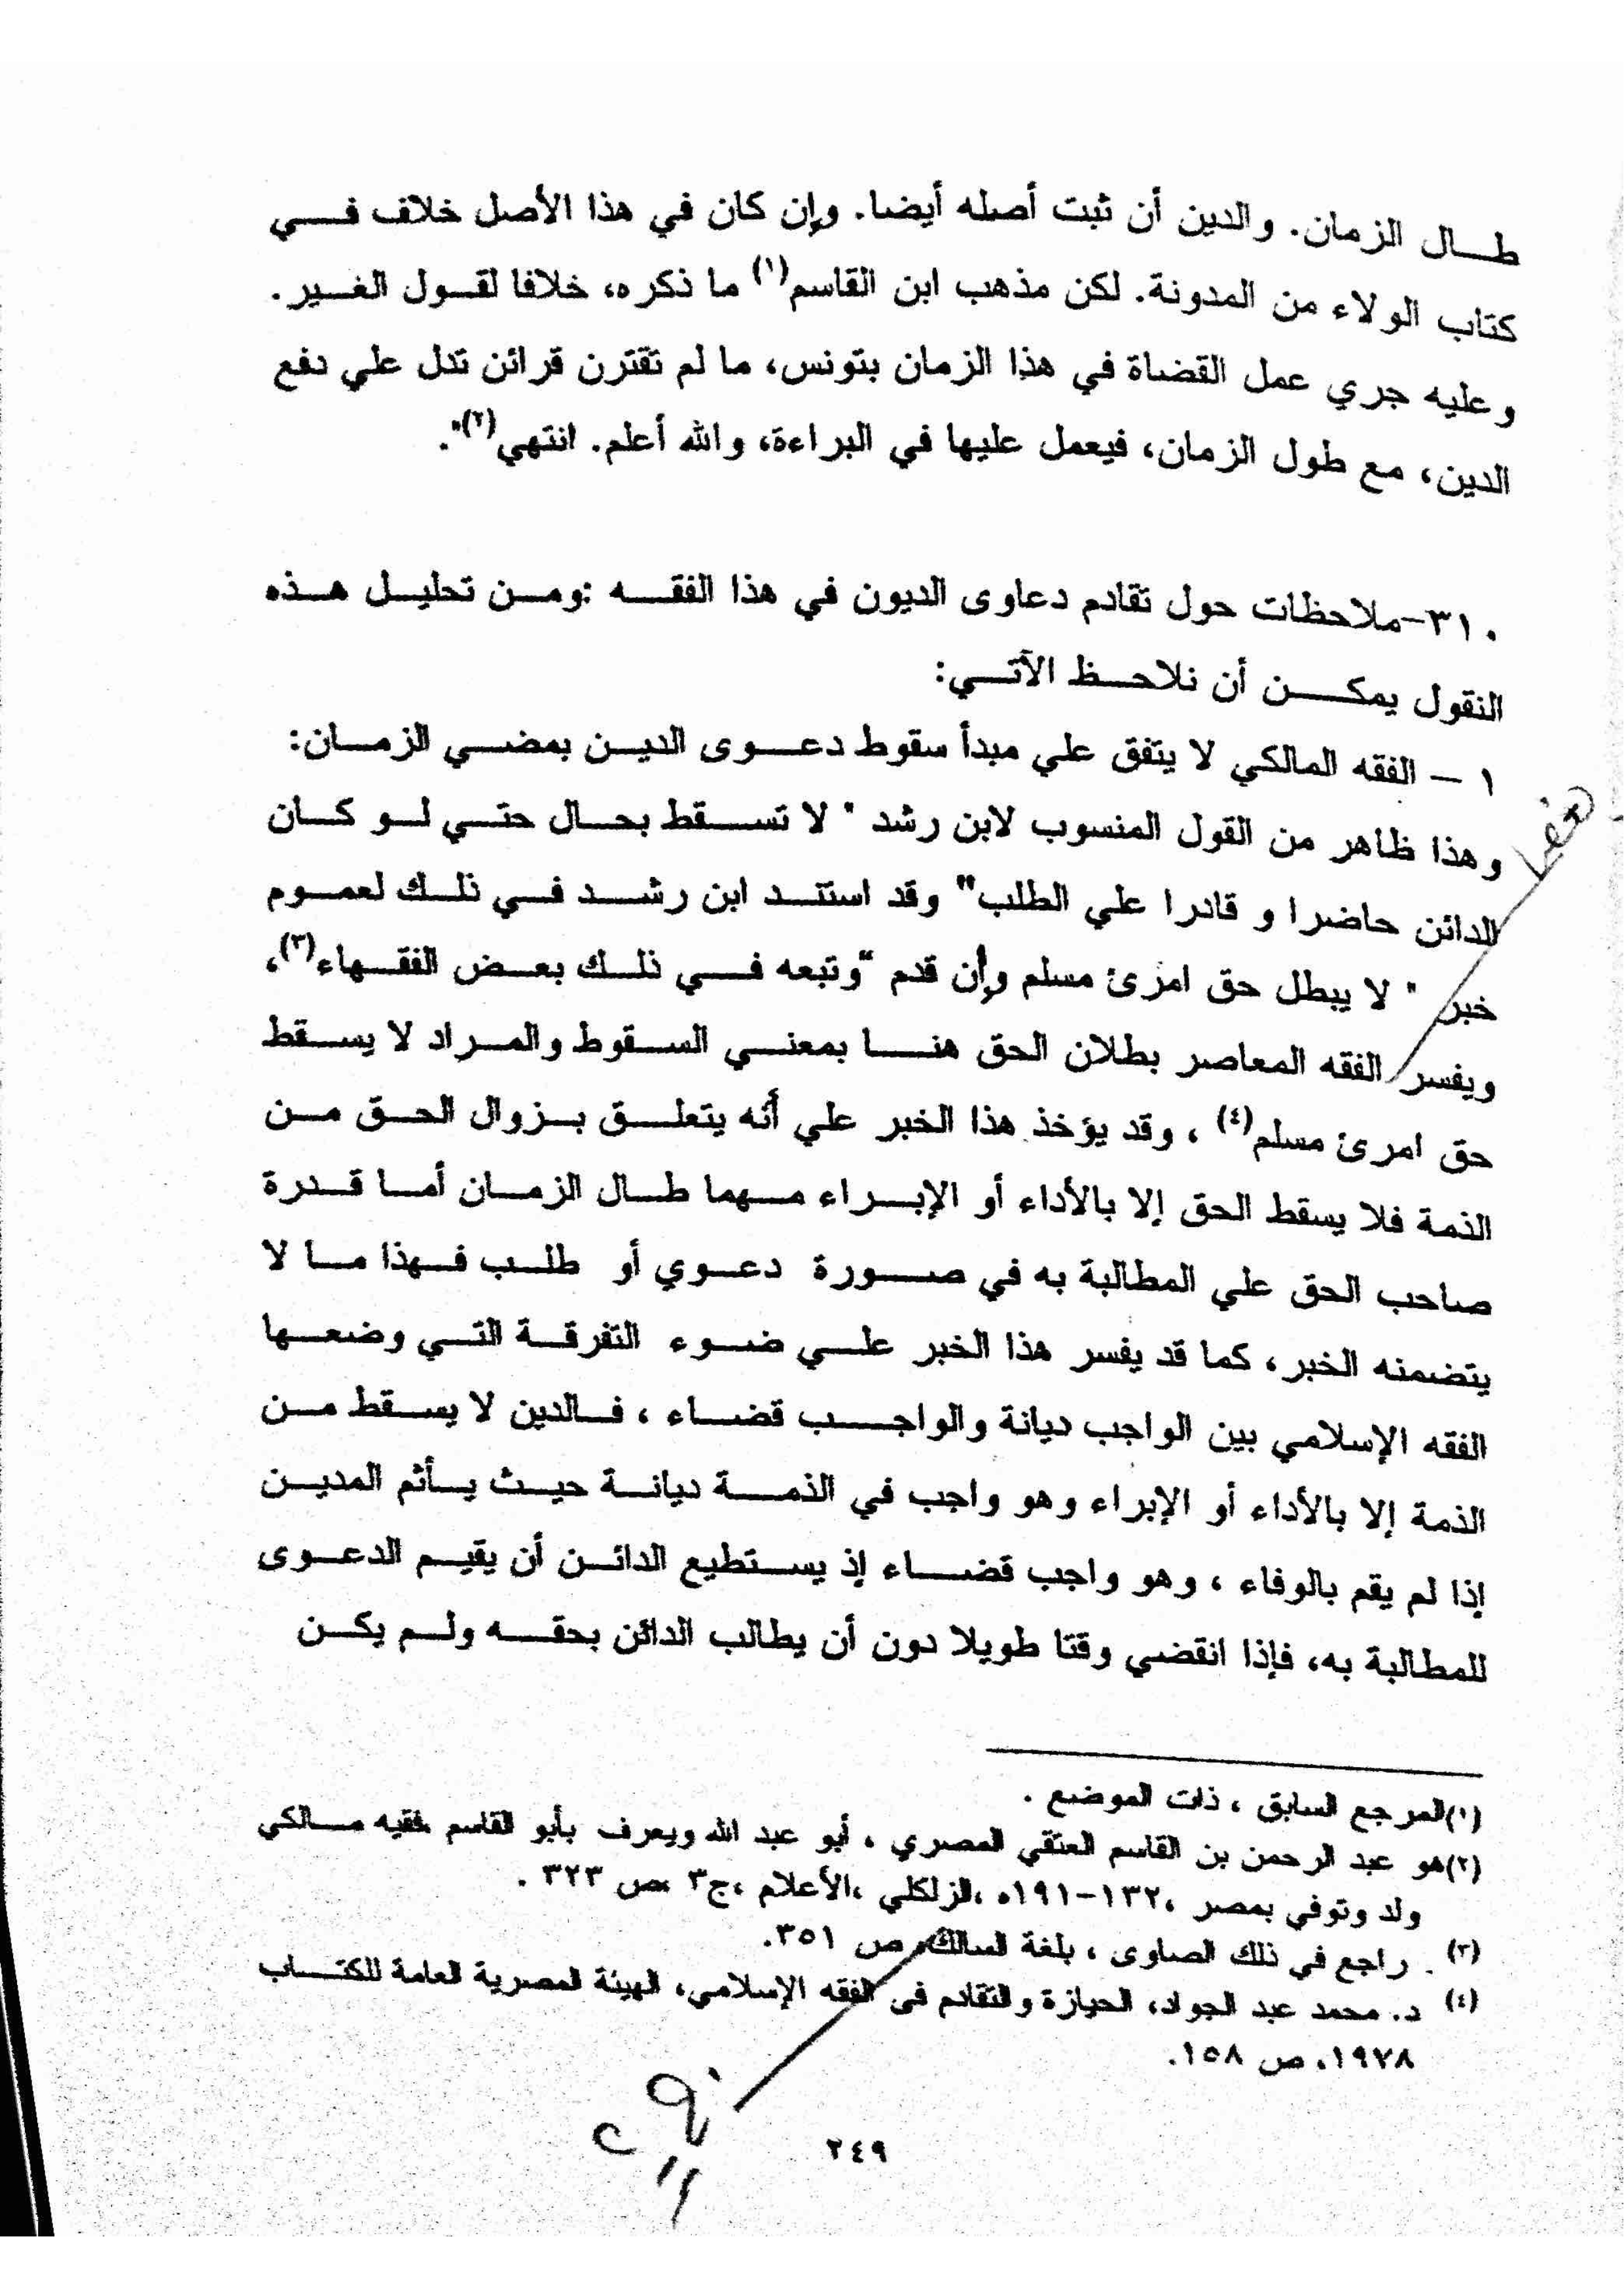 طال الزمان. والدين أن ثبت أصله أيضا. وإن كان في هذا الأصل خلاف في
كتاب الولاء من المدونة. لكن مذهب ابن القاسم(١) ما ذكره، خلافا لقول الغير.
وعليه جري عمل القضاة في هذا الزمان بتونس، ما لم تقترن قرائن تدل علي دفع
الدين، مع طول الزمان، فيعمل عليها في البراءة، والله أعلم. انتهي(٢)".
٣١٠-ملاحظات حول تقادم دعاوى الديون في هذا الفقه :ومن تحليل هذه
النقول يمكن أن نلاحظ الآتي:
١ – الفقه المالكي لا يتفق علي مبدأ سقوط دعوى الدين بمضي الزمان:
وهذا ظاهر من القول المنسوب لابن رشد " لا تسقط بحال حتي لو كان
الدائن حاضرا و قادرا علي الطلب" وقد استند ابن رشد في ذلك لعموم
خبر " لا يبطل حق امرئ مسلم وإن قدم "وتبعه في ذلك بعض الفقهاء(٣)،
ويفسر الفقه المعاصر بطلان الحق هنا بمعني السقوط والمراد لا يسقط
حق امرئ مسلم(٤) ، وقد يؤخذ هذا الخبر علي أنه يتعلق بزوال الحق من
الذمة فلا يسقط الحق إلا بالأداء أو الإبراء مهما طال الزمان أما قدرة
صاحب الحق علي المطالبة به في صورة دعوي أو طلب فهذا ما لا
يتضمنه الخبر، كما قد يفسر هذا الخبر علي ضوء التفرقة التي وضعها
الفقه الإسلامي بين الواجب ديانة والواجب قضاء ، فالدين لا يسقط من
الذمة إلا بالأداء أو الإبراء وهو واجب في الذمة ديانة حيث يأثم المدين
إذا لم يقم بالوفاء ، وهو واجب قضاء إذ يستطيع الدائن أن يقيم الدعوى
للمطالبة به، فإذا انقضي وقتا طويلا دون أن يطالب الدائن بحقه ولم يكن
(١)المرجع السابق ، ذات الموضع .
(٢)هو عبد الرحمن بن القاسم العتقي المصري ، أبو عبد الله ويعرف بأبو القاسم ،فقيه مالكي
ولد وتوفي بمصر ،١٣٢-١٩١ه ،الزلكلي ،الأعلام ،ج٣ ،ص ٣٢٣ .
(٣) . راجع في ذلك الصاوى ، بلغة السالك، ص ٣٥١.
(٤) د. محمد عبد الجواد، الحيازة والتقادم فى الفقه الإسلامي، الهيئة المصرية العامة للكتاب
١٩٧٨، ص ١٥٨.
٢٤٩